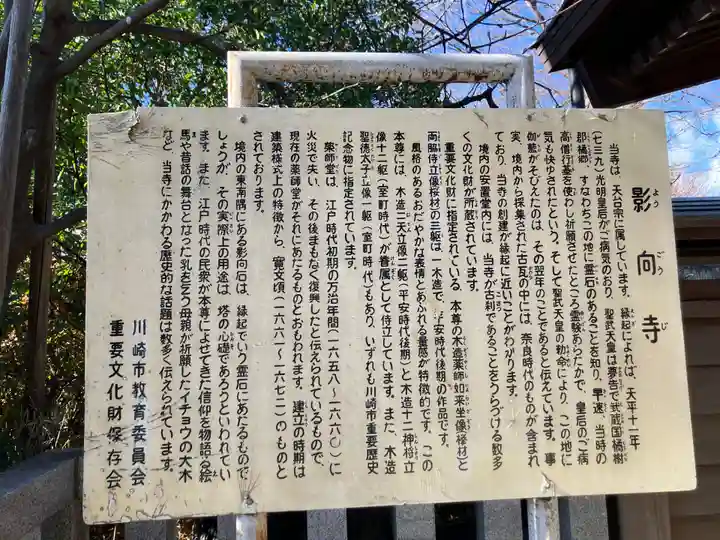 影向寺
よう ごう じ
当寺は、天台宗に属しています。縁起によれば、天平十一年
(七三九)光明皇后がご病気のおり、聖武天皇は夢告で武蔵国橘樹
郡橘郷、すなわちこの地に霊石のあることを知り、早速、当時の
高僧行基を使わし祈願させたところ霊験あらたかで、皇后のご病
気も快ゆされたという。そして聖武天皇の勅命により、この地に
伽藍がそびえたのは、その翌年のことであると伝えています。事
実、境内から採集された古瓦の中には、奈良時代のものが含まれ
ており、当寺の創建が縁起に近いことがわかります。
境内の安置堂内には、当寺が古刹であることをうらづける数多
くの文化財が所蔵されています。
重要文化財に指定されている、本尊の木造薬師如来坐像桜材と
両脇侍立像桜材の三躯は、一木造で、平安時代後期の作品です。
風格のあるおだやかな表情とあふれる量感が特徴的です。この
本尊には、木造二天立像二躯(平安時代後期)と木造十二神将立
像十二躯(室町時代)が眷属として侍立しています。また、木造
聖徳太子立像一躯(室町時代)もあり、いずれも川崎市重要歴史
記念物に指定されています。
薬師堂は、江戸時代初期の万治年間(一六五八〜一六六〇)に
火災で失い、その後まもなく復興したと伝えられているもので、
現在の薬師堂がそれにあたるものとおもわれます。建立の時期は
建築様式上の特徴から、寛文頃(一六六一〜一六七二)のものと
されております。
境内の東南隅にある影向石は、縁起でいう霊石にあたるもので
しょうが、その実際上の用途は、塔の心礎であろうといわれてい
ます。また、江戸時代の民衆が本尊によせてきた信仰を物語る絵
馬や昔話の舞台となった乳を乞う母親が祈願したイチョウの大木
など、当寺にかかわる歴史的な話題は数多く伝えられています。
川崎市教育委員会
重要文化財保存会